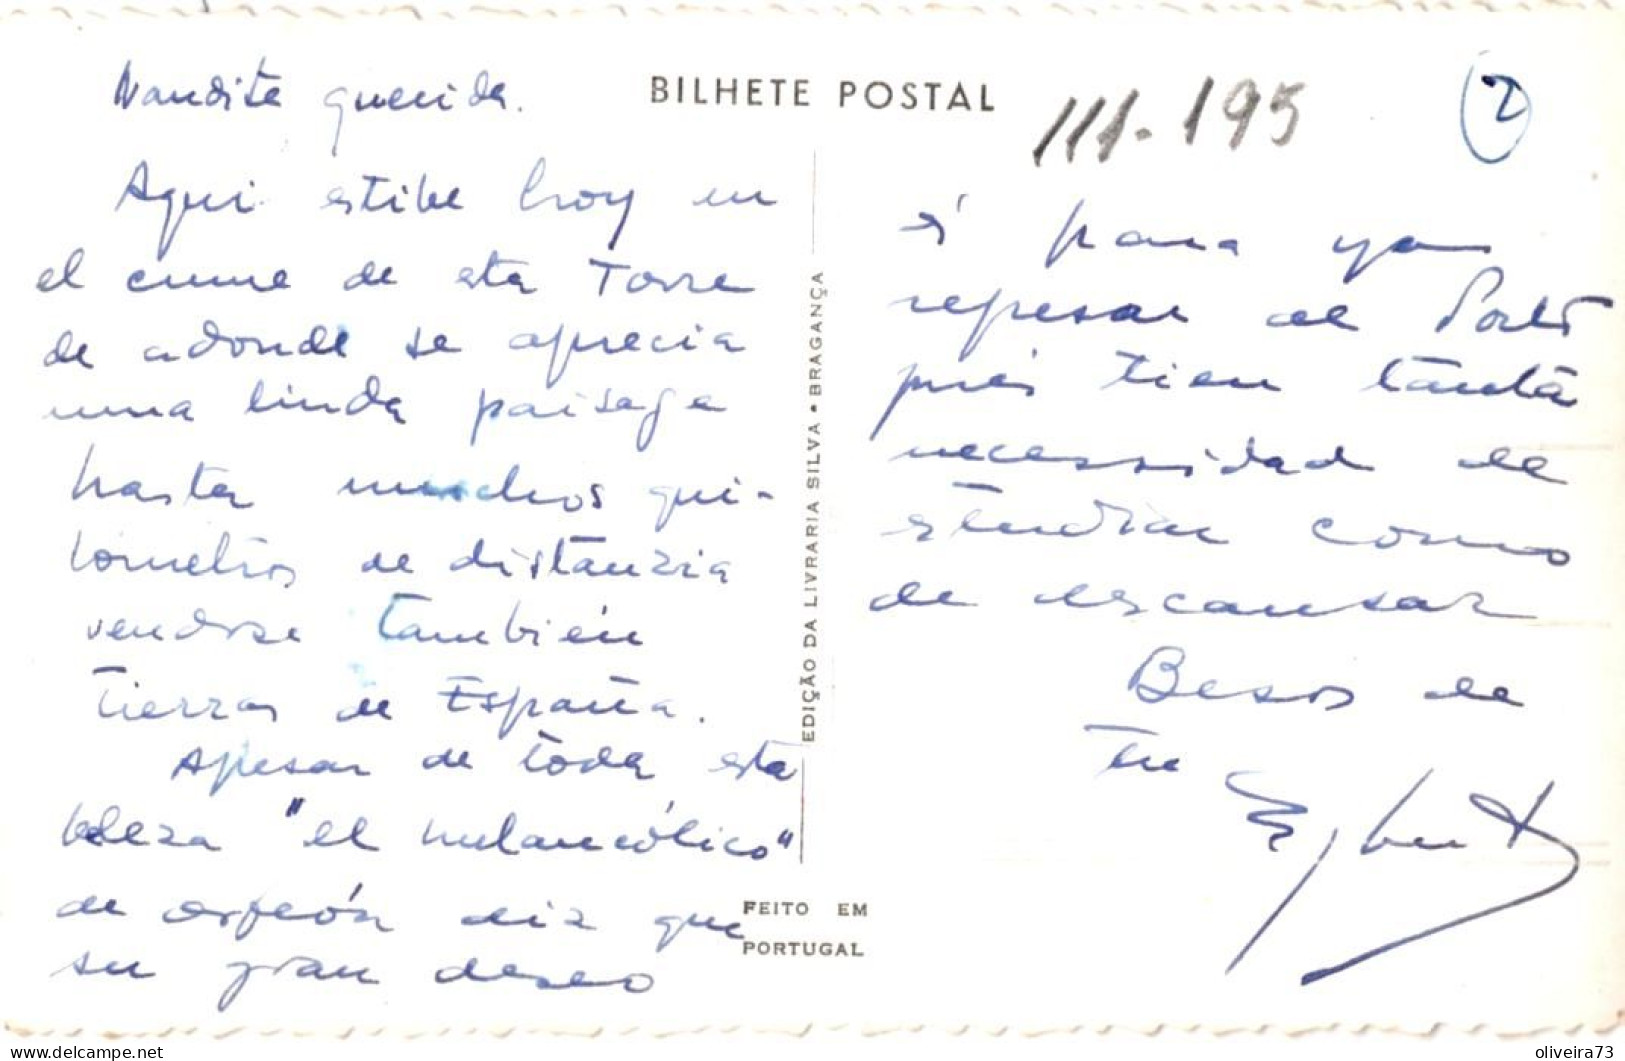 BILHETE POSTAL
111.195
2
Nandita querida.
Aqui estibe hoy en
el cume de esta Torre
de adonde se aprecia
una linda paisage
hasta muchos qui-
lometros de distanzia
vendose también
tierras de España.
Apesar de toda esta
beleza "el melancólico"
de orfeón diz que
su gran deseo
és para
regresar al Porto
pués tien tanta
necessidad de
studiar como
de descansar
Besos de
tu
Egbert
EDIÇÃO DA LIVRARIA SILVA • BRAGANÇA
FEITO EM
PORTUGAL
delcampe.net
oliveira73